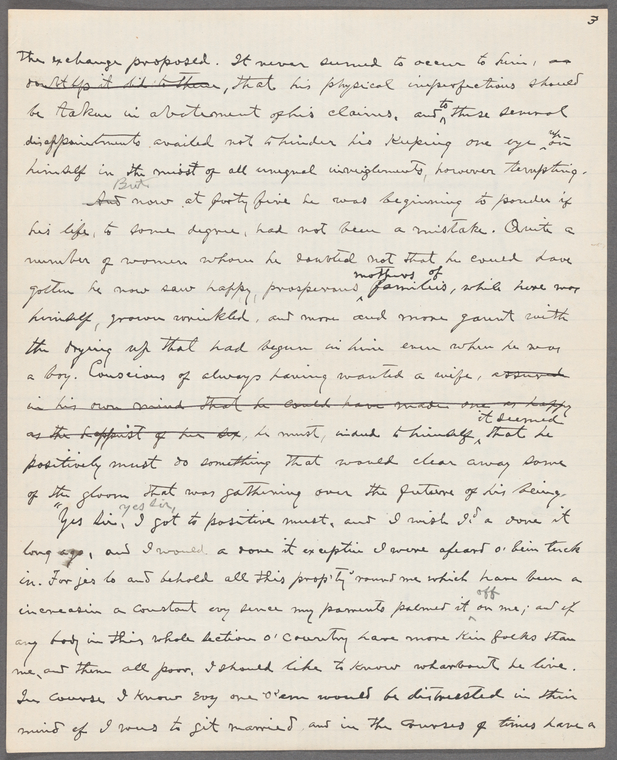 3
the exchange proposed. It never seemed to occur to him, as
that his physical imperfections should
be taken in abatement of his claims, and to these several
disappointments availed not to hinder his keeping one eye upon
himself in the midst of all unequal inveiglements, however tempting.
And But now at forty five he was beginning to ponder if
his life, to some degree, had not been a mistake. Quite a
number of women whom he doubted not that he could have
gotten he now saw happy, prosperous mothers of families, while here was
himself, grown wrinkled, and more and more gaunt with
the drying up that had begun in him even when he was
a boy. Conscious of always having wanted a wife, assured
in his own mind that he could have made one as happy
as the happiest of her sex, he must, indeed to himself, it seemed that he
positively must do something that would clear away some
of the gloom that was gathering over the future of his being.
"Yes Sir, yes sir, I got to positive must, and I wish I'd a done it
long ago, and I would a done it exceptin I were afeard o' bein tuck
in. For jes lo and behold all this prop'ty 'round me which have been a
increasin a constant evy sence my parrents palmed it off on me; and ef
any body in this whole section o' country have more kin folks than
me, and them all poor, I should like to know wharbout he live.
In course I know evy one o' 'em would be distressted in thir
mind ef I wus to git married and in the courses of times have a